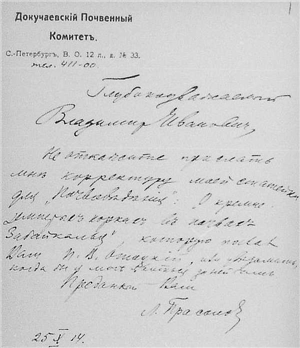 Докучаевскій Почвенный
Комитетъ.
С.-Петербургъ, В. О. 12 л., д. № 33.
тел. 411-00
1
Глубокоуважаемый
Владимир Иванович,
Не откажите прислать
мне корректуру моей
для "Почвоведения": О
в почвах
Забайкалья которую
Вам П. В. Отоцкий, уведомить,
когда
Преданный Вам
Л. Прасолов
25 X 14.